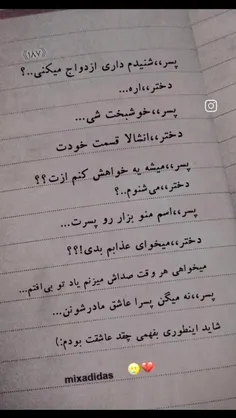 (۱۸۷)
پسر،،شنیدم داری ازدواج میکنی..؟
دختر،،اره...
پسر،،خوشبخت شی...
دختر،،انشالا قسمت خودت
پسر،،میشه یه خواهش کنم ازت؟؟
دختر،،می شنوم..؟
پسر،،اسم منو بزار رو پسرت...
دختر،،میخوای عذابم بدی!؟؟
میخواهی هر وقت صداش میزنم یاد تو بی افتم...
پسر،،نه میگن پسرا عاشق مادرشونن...
شاید اینطوری بفهمی چقد عاشقت بودم:)
mixadidas